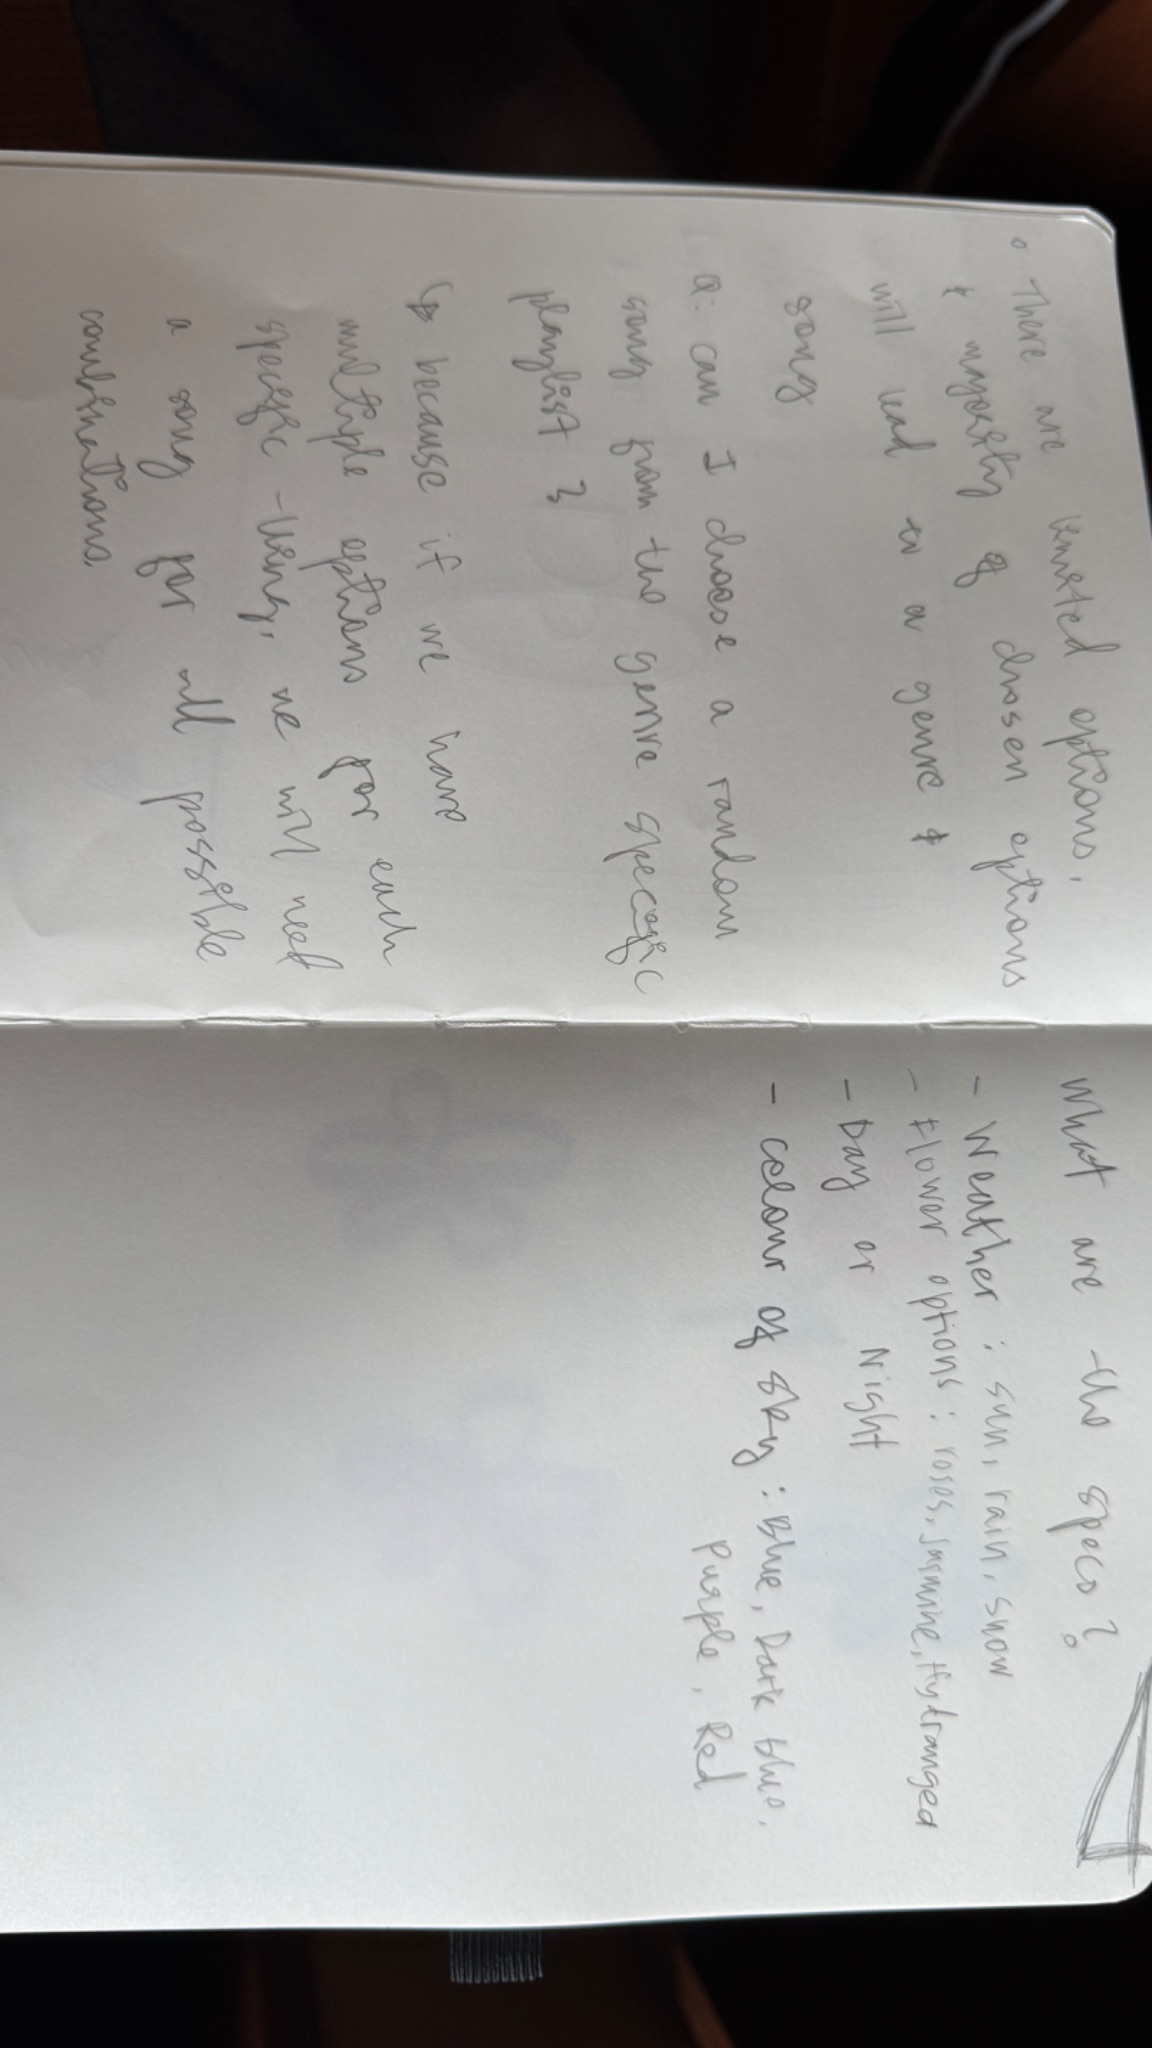 • There are limited options,
& majority of chosen options
will lead to a genre &
song
Q: can I choose a random
song from the genre specific
playlist ?
↳ because if we have
multiple options for each
specific thing, we will need
a song for all possible
combinations.
What are the specs?
- Weather : sun, rain, snow
- Flower options : roses, jasmine, Hydranged
- Day or Night
- colour of sky : Blue, Dark blue,
Purple, Red